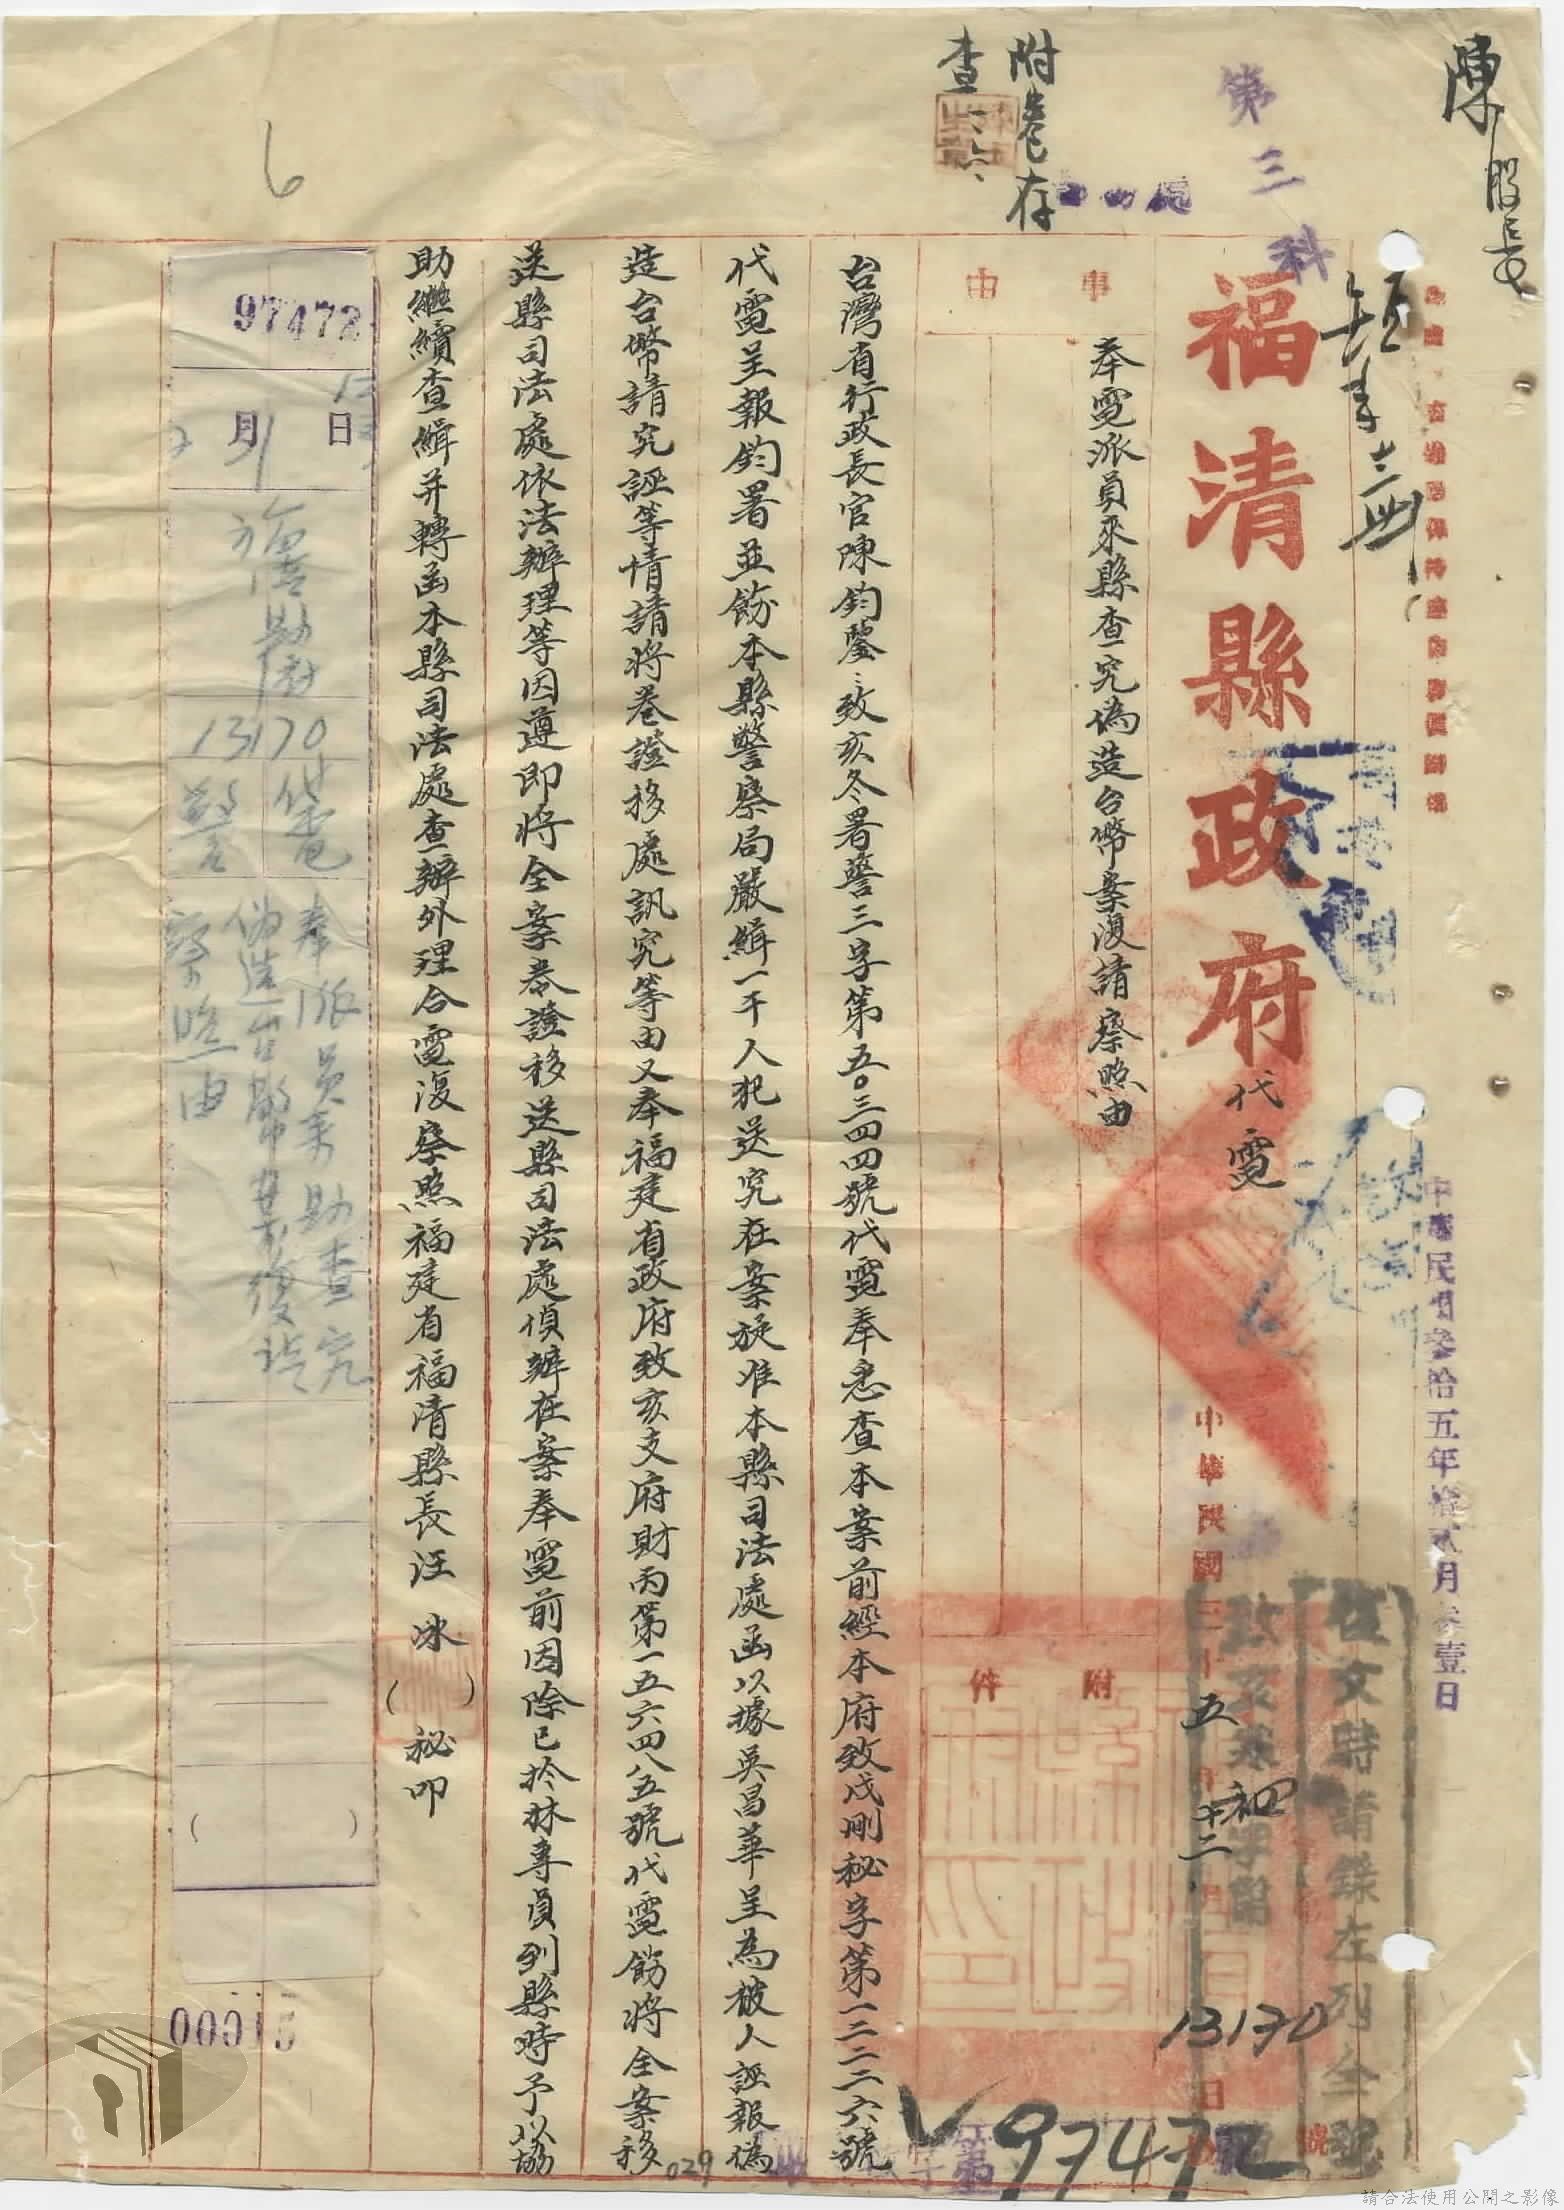 陳股長
第三科
附卷存
查
福清縣政府代電
中華民國參拾五年拾貳月參壹日
中華民國三十五年十二月日
復文時請錄左列全號
致亥寒
13170
97472
事由
奉電派員來縣查究偽造台幣案復請察照由
附件
台灣省行政長官陳鈞鑒:致亥冬署警三字第五〇三四四號代電奉悉查本案前經本府致戌刪秘字第一二二二六號
代電呈報鈞署並飭本縣警察局嚴緝一干人犯送究在案旋准本縣司法處函以據吳昌華呈為被人誣報偽
造台幣請究誣等情請將卷證移處訊究等由又奉福建省政府致亥支府財丙第一五六四八五號代電飭將全案移
送縣司法處依法辦理等因遵即將全案卷證移送縣司法處偵辦在案奉電前因除已於林專員列縣時予以協
助繼續查緝并轉函本縣司法處查辦外理合電復察照福建省福清縣長汪 冰( )秘叩
97472
月 日
13170
代電
警
奉派員来助查究
偽造台幣案復請
察照由
00015
029
6
請合法使用公開之影像